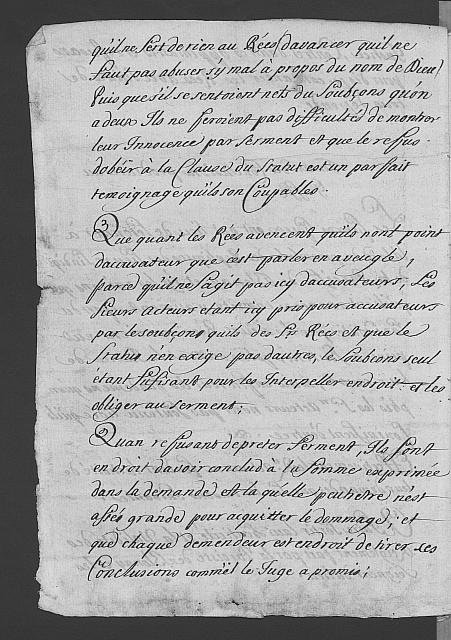 qu'il ne sert de rien au Rées d'avancer qu'il ne
faut pas abuser s'y mal à propos du nom de Dieu
Puis que s'il se sentoient nets du soubçons qu'on
a deux Ils ne feroient pas difficultés de montrer
leur Innocence par Serment et que le reffus
dobéir à la Clause du Statut est un parfait
temoignage quils son Coupables.
3 Que quant les Rées avencent quils nont point
daccusateur que cest parler en aveugle,
parce qu'il ne s'agit pas icy daccusateurs, Les
Sieurs Acteurs etant icy pris pour accusateurs
par le soubçons quils des Srs Rées et que le
Statut n'en exige pas dautres, le Soubçons seul
étant suffisant pour les Interpeller endroit et les
obliger au serment;
Quan reffusant de preter Serment, Ils sont
en droit davoir conclud à la Somme exprimée
dans la demande et laquelle peutetre nest
assés grande pour acquitter le dommage, et
que chaque demendeur est endroit de tirer ses
Conclusions comme il le Juge a promis;